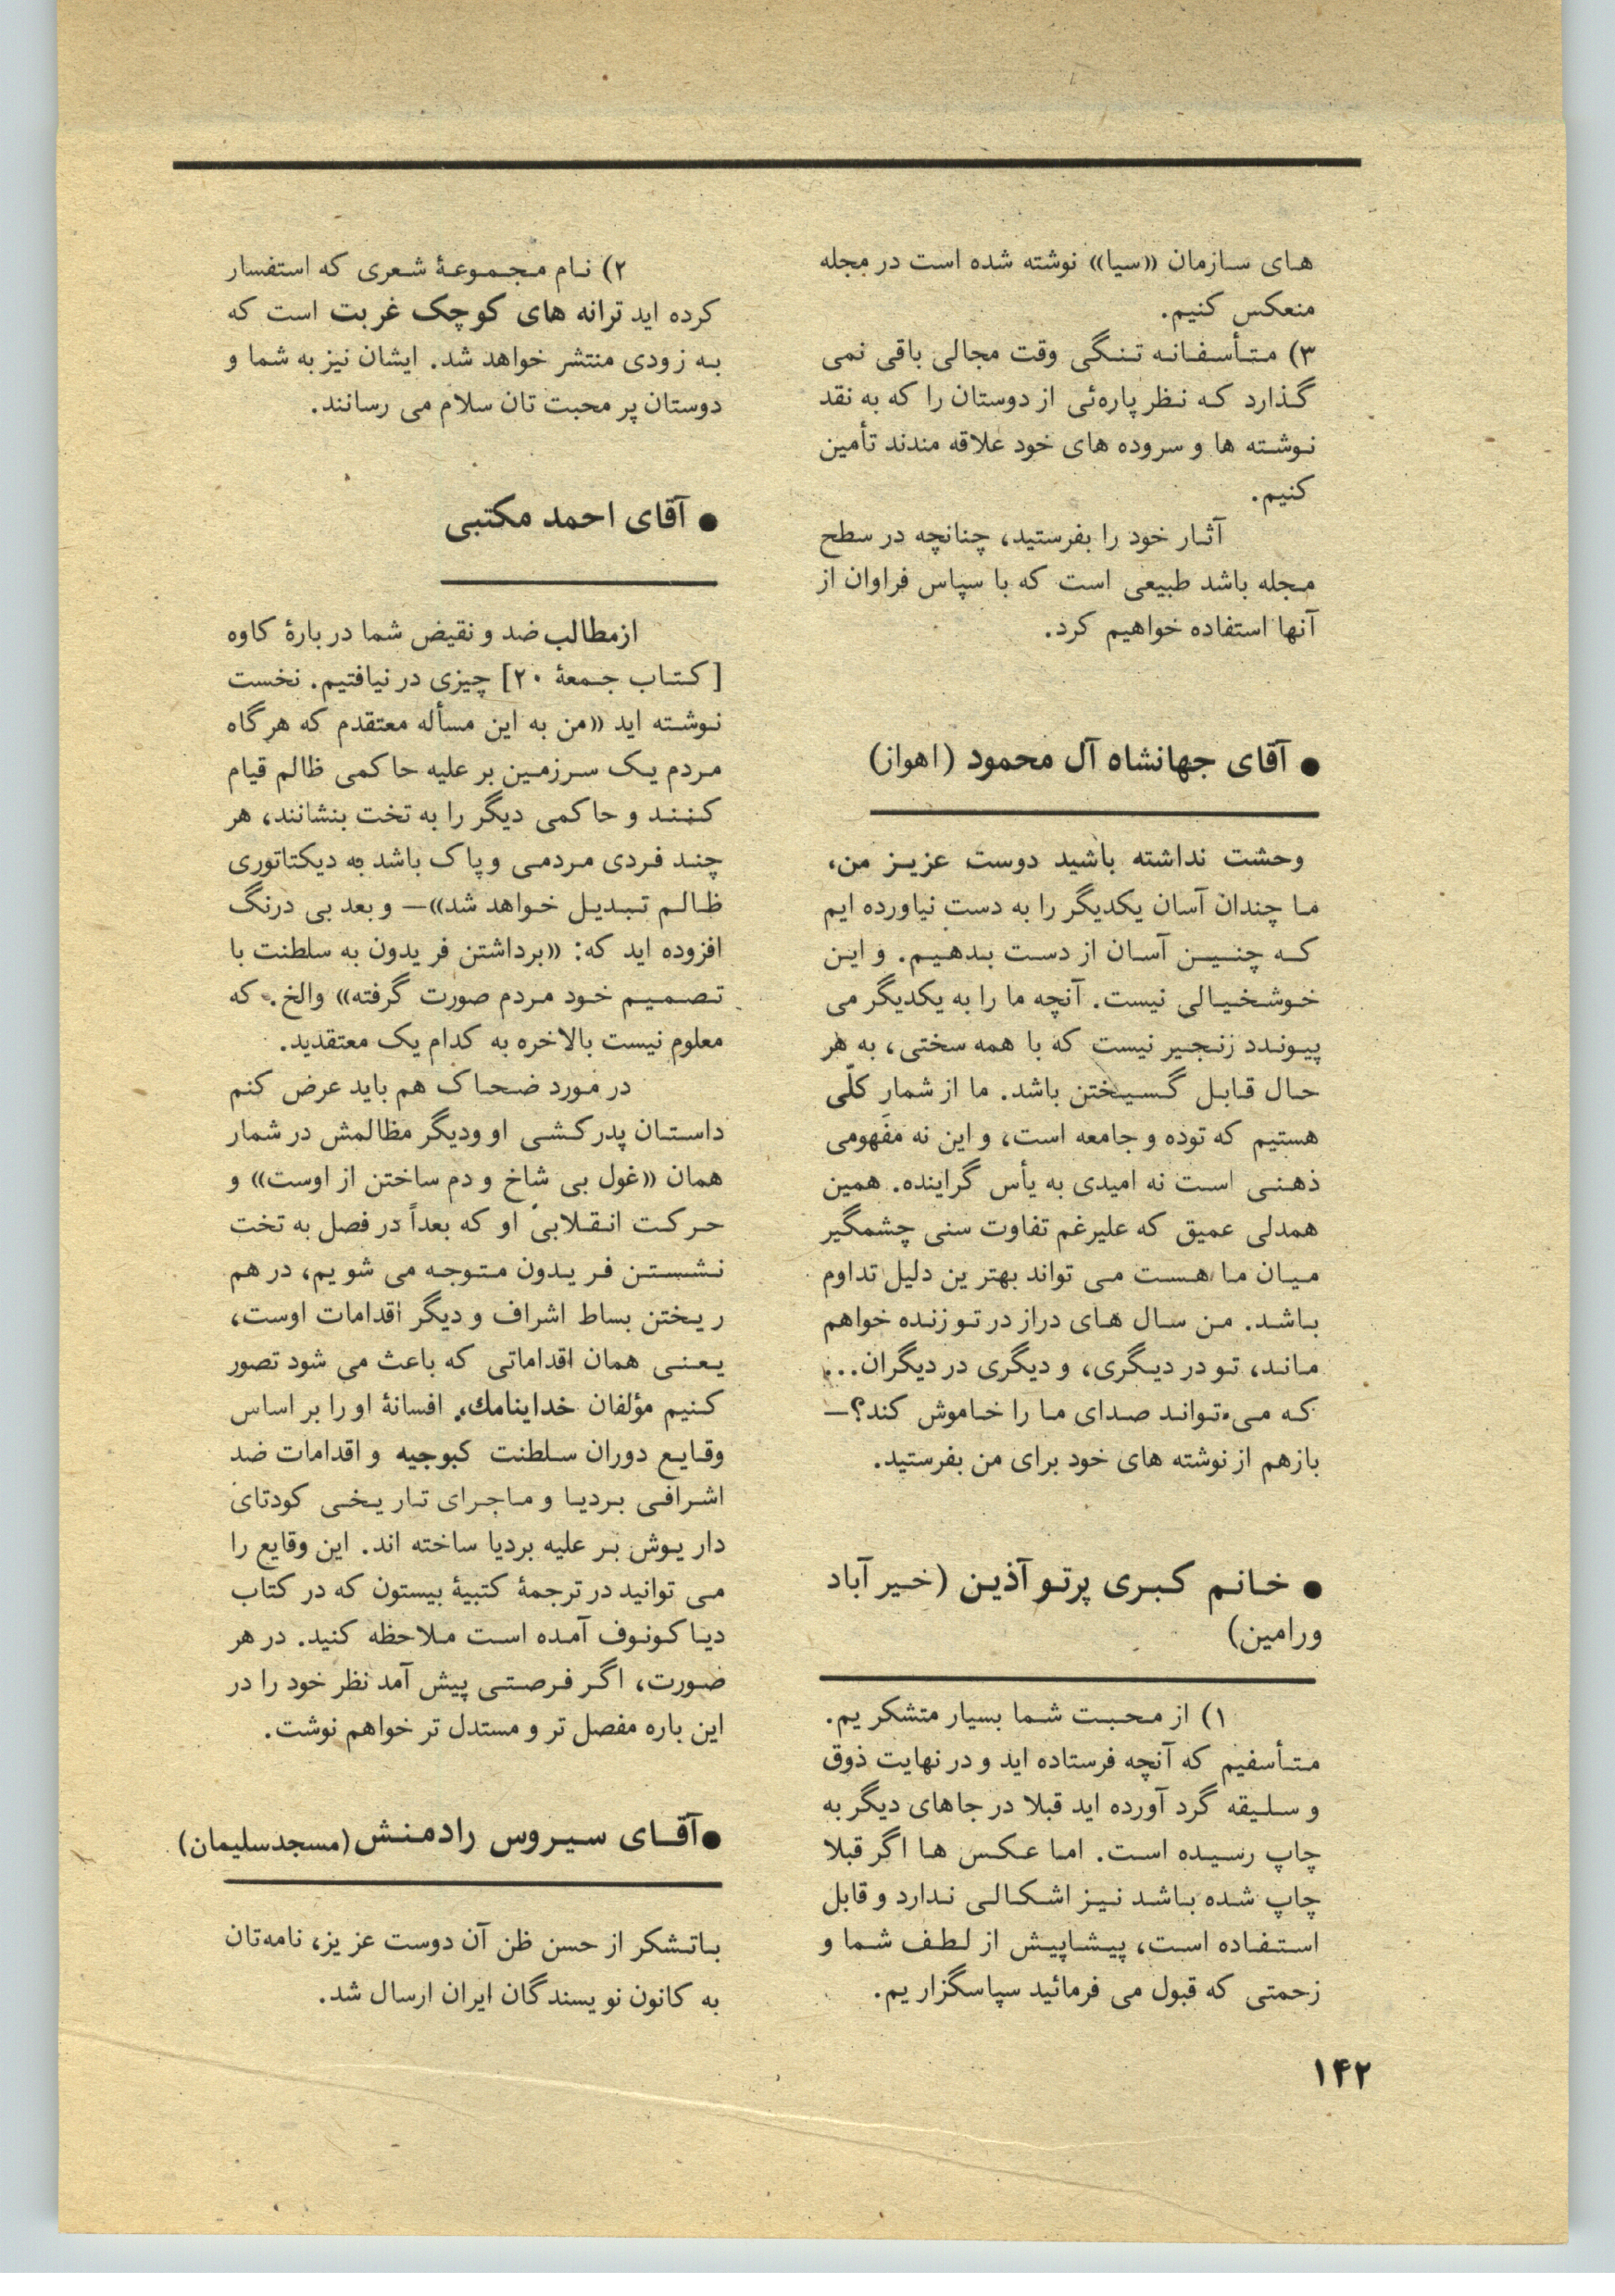 های سازمان «سیا» نوشته شده است در مجله
منعکس کنیم.
۳) متأسفانه تنگی وقت مجالی باقی نمی
گذارد که نظر پاره‌ئی از دوستان را که به نقد
نوشته ها و سروده های خود علاقه مندند تأمین
کنیم.
آثار خود را بفرستید، چنانچه در سطح
مجله باشد طبیعی است که با سپاس فراوان از
آنها استفاده خواهیم کرد.
● آقای جهانشاه آل محمود (اهواز)
وحشت نداشته باشید دوست عزیز من،
ما چندان آسان یکدیگر را به دست نیاورده ایم
که چنین آسان از دست بدهیم. و این
خوشخیالی نیست. آنچه ما را به یکدیگر می
پیوندد زنجیر نیست که با همه سختی، به هر
حال قابل گسیختن باشد. ما از شمار کلّی
هستیم که توده و جامعه است، و این نه مفهومی
ذهنی است نه امیدی به یأس گراینده. همین
همدلی عمیق که علیرغم تفاوت سنی چشمگیر
میان ما هست می تواند بهترین دلیل تداوم
باشد. من سال های دراز در تو زنده خواهم
ماند، تو در دیگری، و دیگری در دیگران...
که می تواند صدای ما را خاموش کند؟—
بازهم از نوشته های خود برای من بفرستید.
● خانم کبری پرتو آذین (خیر آباد
ورامین)
۱) از محبت شما بسیار متشکریم.
متأسفیم که آنچه فرستاده اید و در نهایت ذوق
و سلیقه گرد آورده اید قبلا در جاهای دیگر به
چاپ رسیده است. اما عکس ها اگر قبلا
چاپ شده باشد نیز اشکالی ندارد و قابل
استفاده است، پیشاپیش از لطف شما و
زحمتی که قبول می فرمائید سپاسگزاریم.
۲) نام مجموعهٔ شعری که استفسار
کرده اید ترانه های کوچک غربت است که
به زودی منتشر خواهد شد. ایشان نیز به شما و
دوستان پر محبت تان سلام می رسانند.
● آقای احمد مکتبی
از مطالب ضد و نقیض شما دربارهٔ کاوه
[کتاب جمعهٔ ۲۰] چیزی درنیافتیم. نخست
نوشته اید «من به این مسأله معتقدم که هرگاه
مردم یک سرزمین بر علیه حاکمی ظالم قیام
کنند و حاکمی دیگر را به تخت بنشانند، هر
چند فردی مردمی و پاک باشد به دیکتاتوری
ظالم تبدیل خواهد شد»— و بعد بی درنگ
افزوده اید که: «برداشتن فریدون به سلطنت با
تصمیم خود مردم صورت گرفته» والخ. که
معلوم نیست بالاخره به کدام یک معتقدید.
در مورد ضحاک هم باید عرض کنم
داستان پدرکشی او ودیگر مظالمش در شمار
همان «غول بی شاخ و دم ساختن از اوست» و
حرکت انقلابی او که بعداً در فصل به تخت
نشستن فریدون متوجه می شویم، درهم
ریختن بساط اشراف و دیگر اقدامات اوست،
یعنی همان اقداماتی که باعث می شود تصور
کنیم مؤلفان خداینامك، افسانهٔ او را بر اساس
وقایع دوران سلطنت کبوجیه و اقدامات ضد
اشرافی بردیا و ماجرای تاریخی کودتای
داریوش بر علیه بردیا ساخته اند. این وقایع را
می توانید در ترجمهٔ کتبیهٔ بیستون که در کتاب
دیاکونوف آمده است ملاحظه کنید. در هر
صورت، اگر فرصتی پیش آمد نظر خود را در
این باره مفصل تر و مستدل تر خواهم نوشت.
● آقای سیروس رادمنش (مسجدسلیمان)
باتشکر از حسن ظن آن دوست عزیز، نامه‌تان
به کانون نویسندگان ایران ارسال شد.
۱۴۲